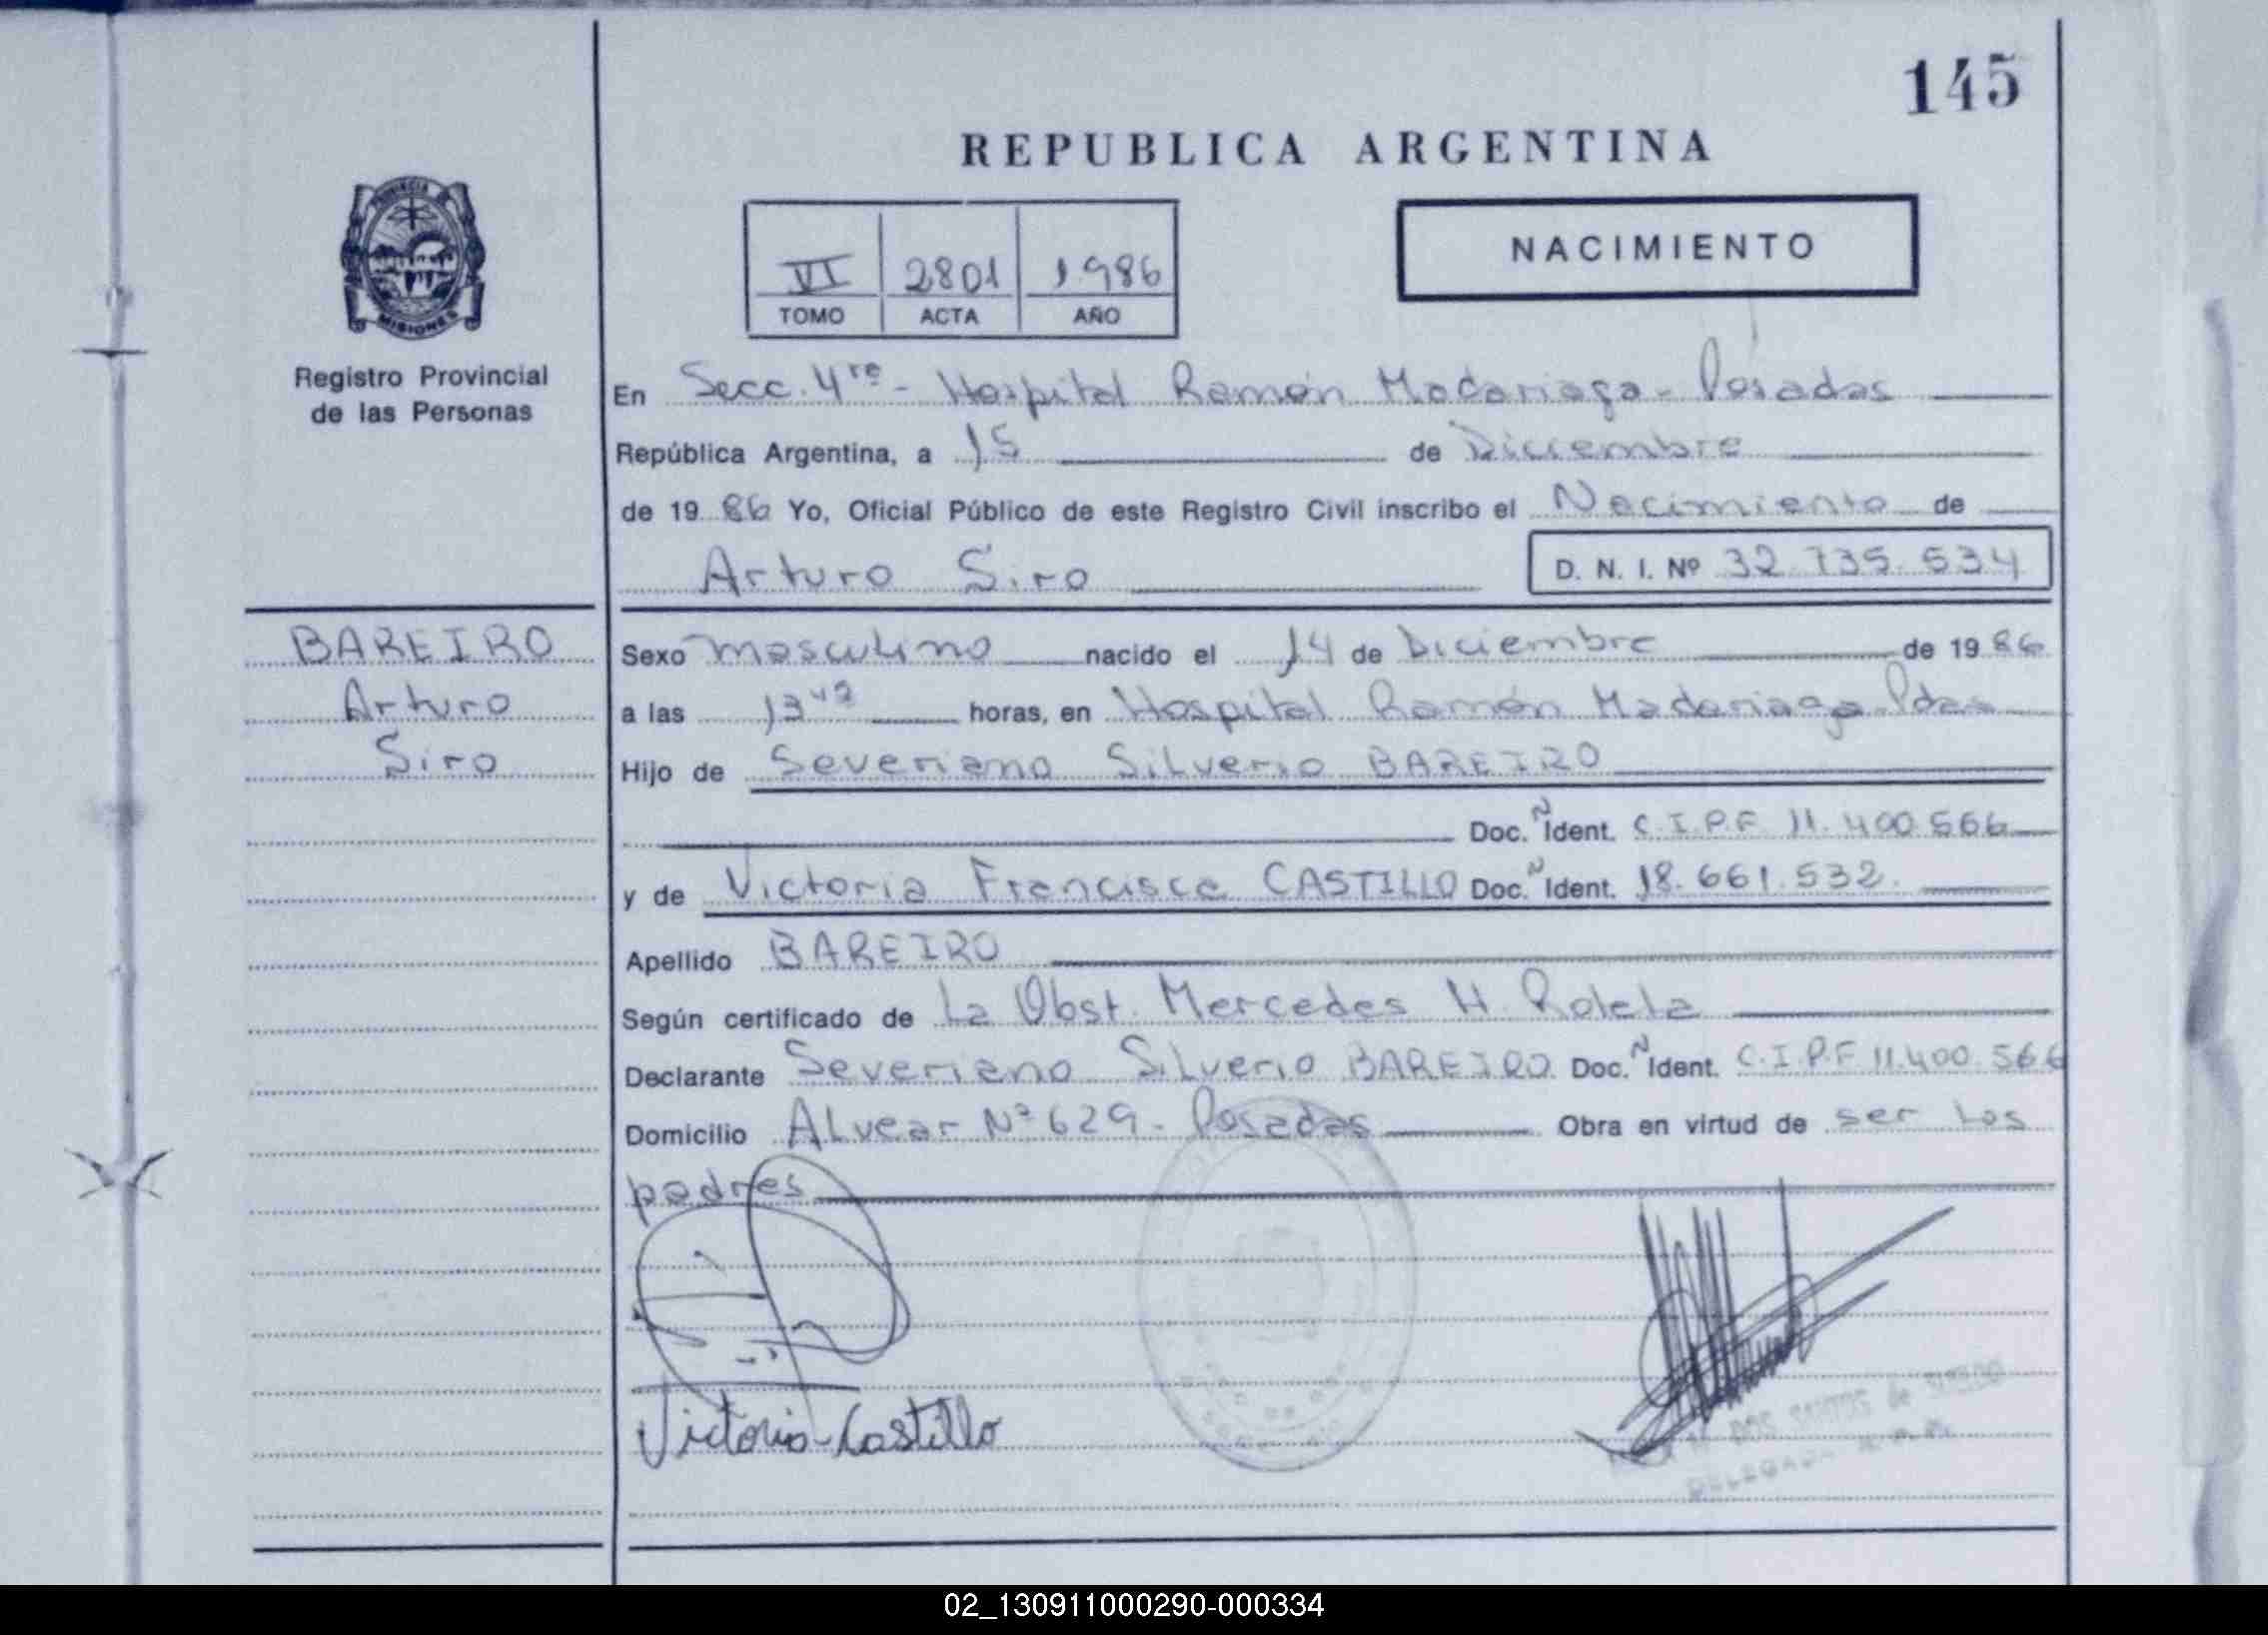 145
REPUBLICA ARGENTINA
PROVINCIA
MISIONES
Registro Provincial
de las Personas
VI 2801 1986
TOMO ACTA AÑO
NACIMIENTO
En Secc. 4ta - Hospital Ramón Madariaga - Posadas
República Argentina, a 15 de Diciembre
de 19 86 Yo, Oficial Público de este Registro Civil inscribo el Nacimiento de
Arturo Siro D. N. I. Nº 32.735.534
BAREIRO
Arturo
Siro
Sexo masculino nacido el 14 de Diciembre de 19 86
a las 13 horas, en Hospital Ramón Madariaga - Pdas
Hijo de Severiano Silverio BAREIRO
Doc. N Ident. C.I.P.F 11.400.566
y de Victoria Francisca CASTILLO Doc. N Ident. 18.661.532.
Apellido BAREIRO
Según certificado de La Obst. Mercedes H. Rolela
Declarante Severiano Silverio BAREIRO Doc. N Ident. C.I.P.F 11.400.566
Domicilio Alvear Nº 629 - Posadas Obra en virtud de ser los
padres
Victoria Castillo
DOS SANTOS de
02_130911000290-000334